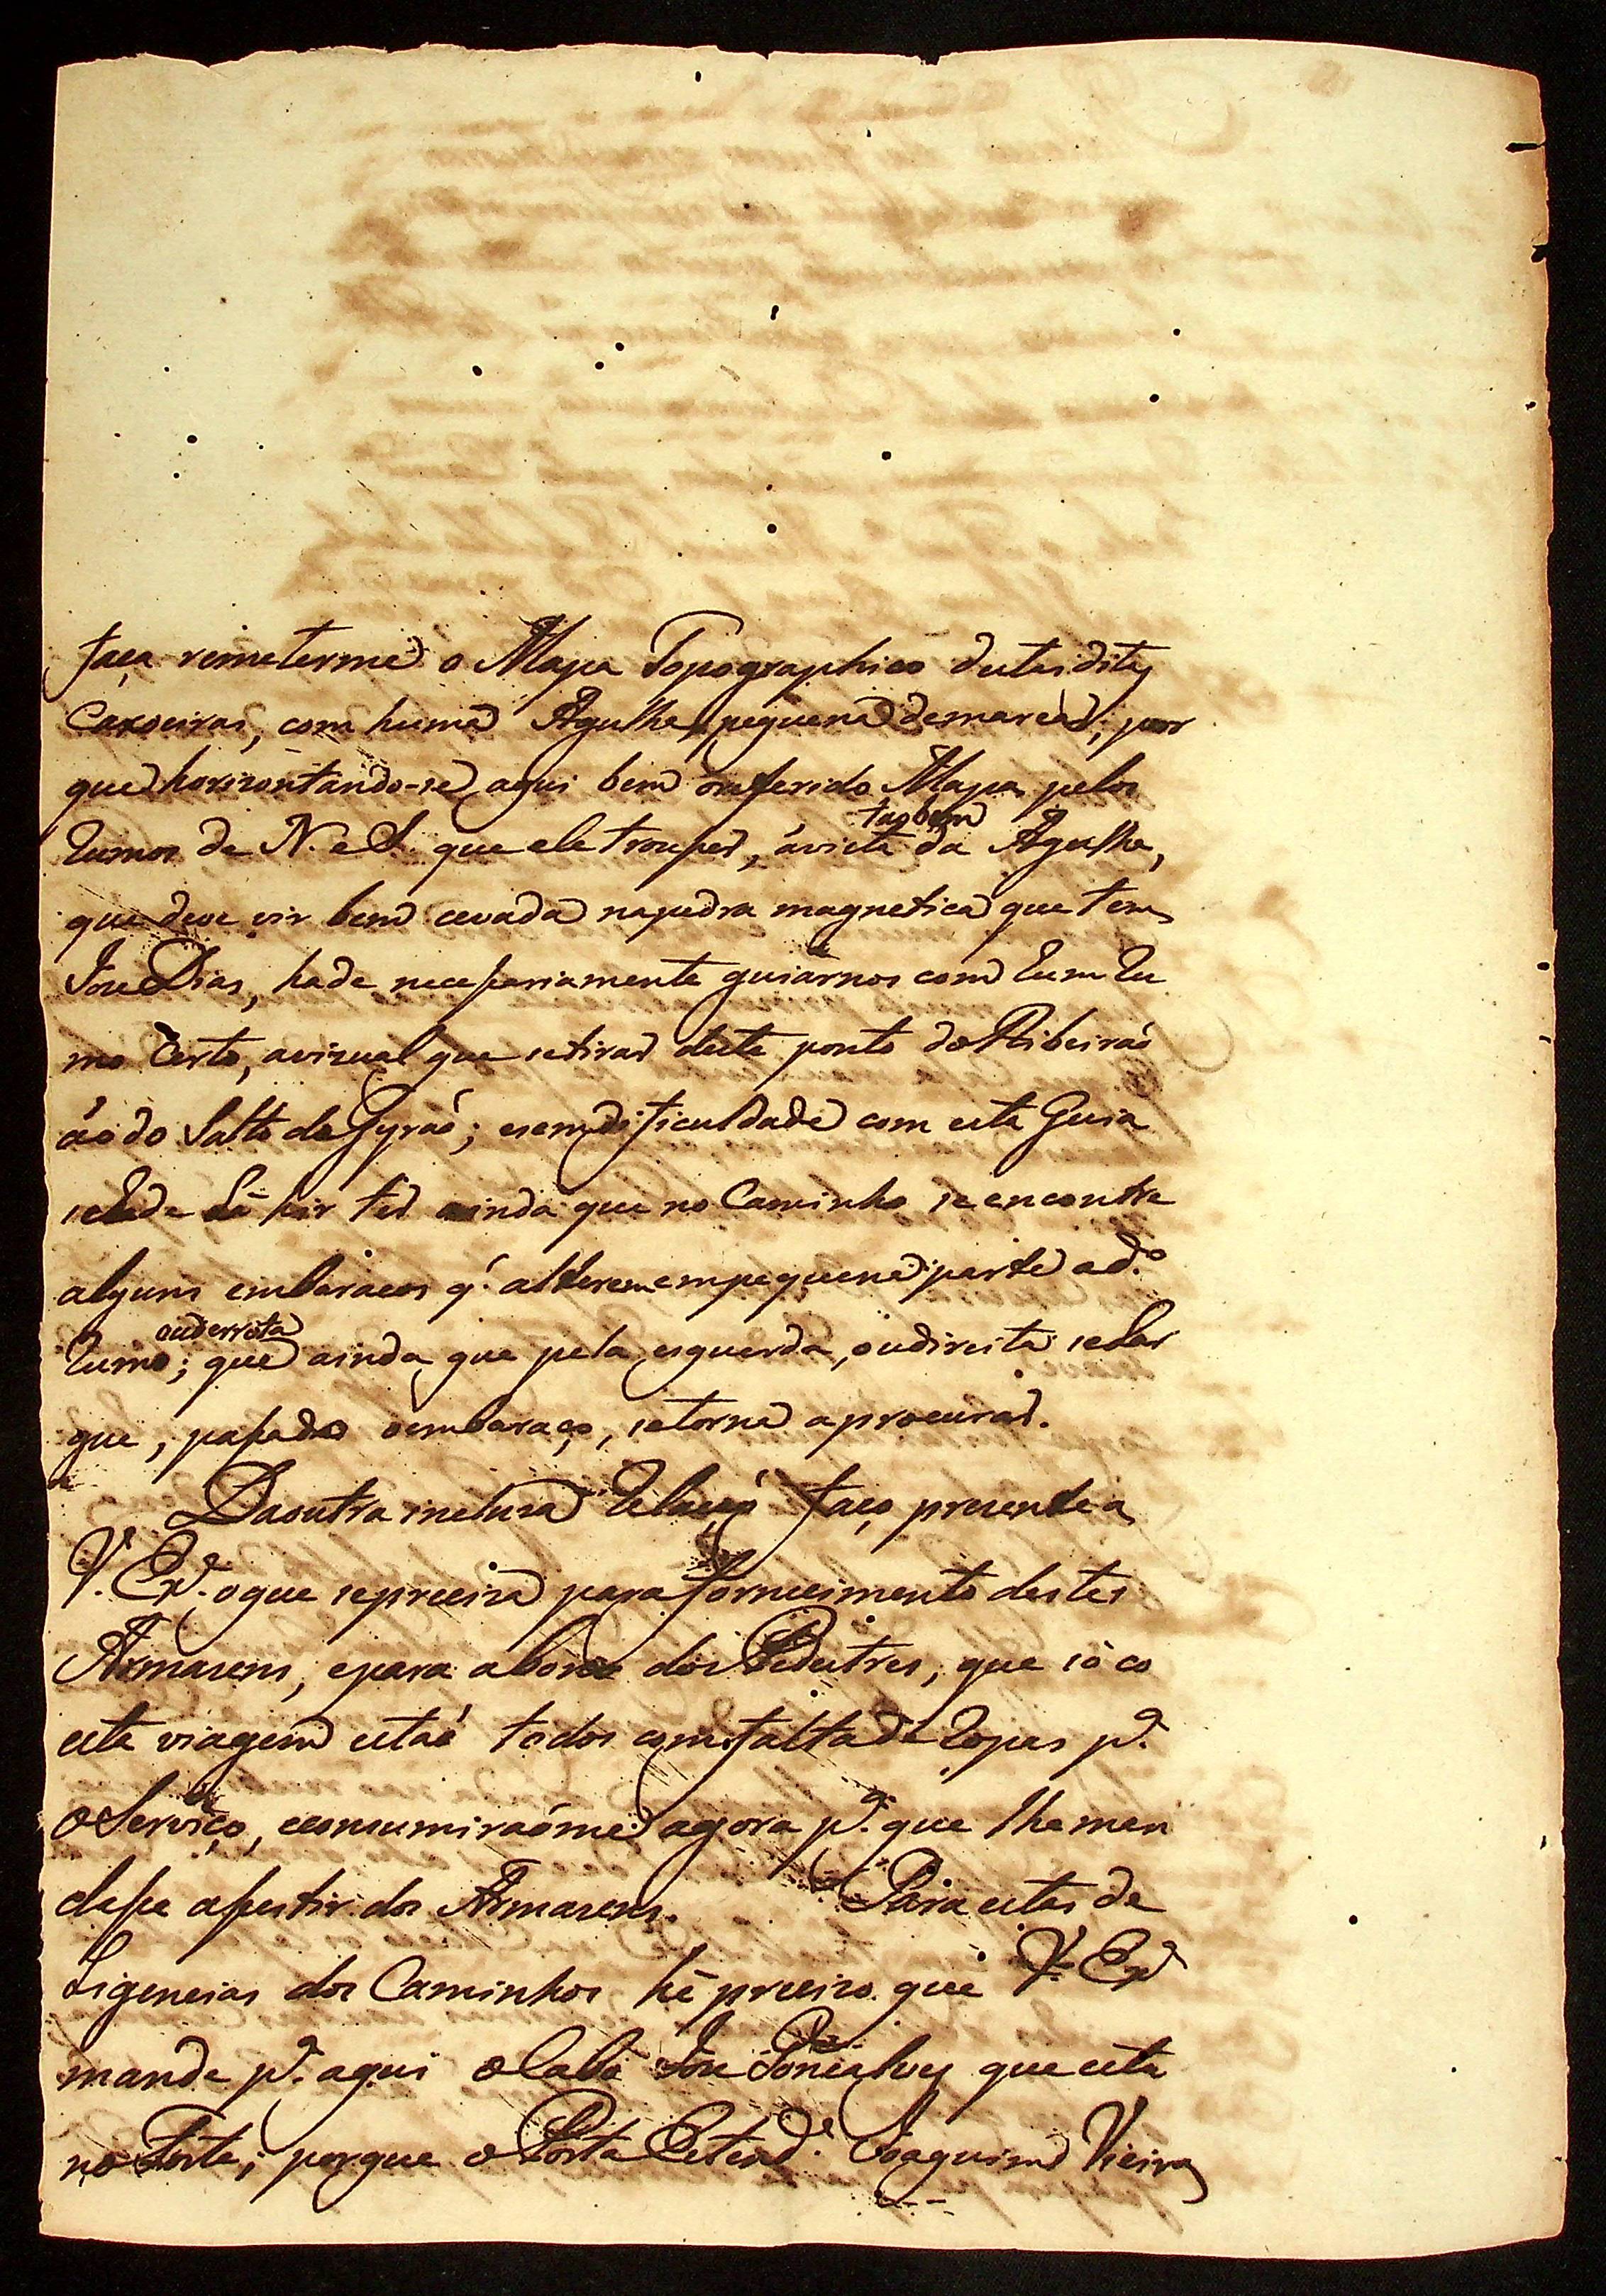 faça remeterme o Mapa Topographico destas ditas
Caxoeiras, com huma Agulha pequena demarcar, por
que horizontando-se aqui bem oreferido Mapa pelos
Rumos de N. e S. que ele trouxer, ávista taobem da Agulha,
que deve vir bem cevada napedra magnetica que tem
Joze Dias, hade necessariamente guiárnos com Rum Ru
mo Certo, avizual que setirar deste ponto do Ribeiraó
áo do Salto do Gyraó; esem dificuldade com esta Guia
sehade Lá hir ter ainda que no Caminho se encontre
alguns embaraços q.' alterem empequena parte ad.º
Rumo, ouderrota; que ainda que pela esquerda, oudireita selar
gue, passado oembaraço, setorna aprocurar.
Daoutra incluza Relaçaó faço prezente a
V. Ex.ª oque sepreciza para fornecimento destes
Armazens, epara abono dos Pedestres, que só co
esta viagem estaó todos com falta de Ropas p.ª
o Serviço, econsumiraóme agora p.ª que lhe man
dasse assestir dos Armazens. Para estas de
Ligencias dos Caminhos hé precizo que V. Ex.ª
mande p.ª aqui o Cabo Joze Gonçalves que está
no Forte; porque o Porta Estend.e Joaquim Vieira